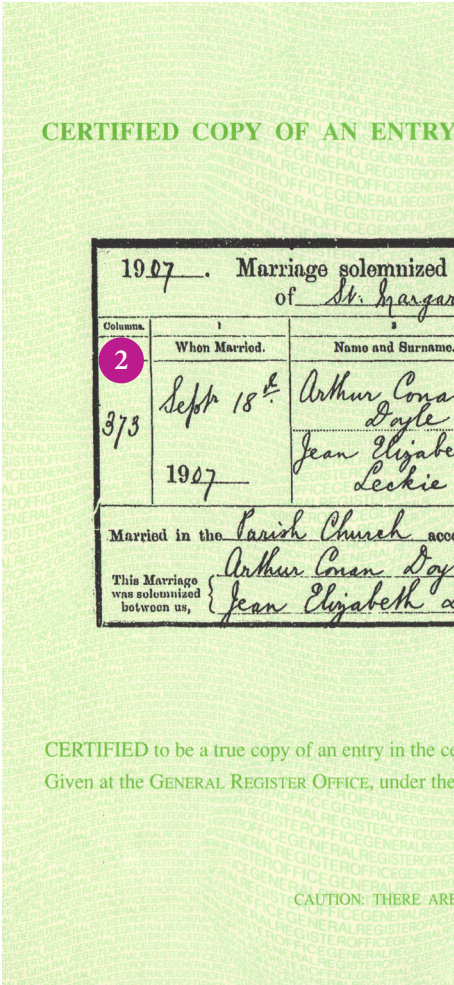 CERTIFIED COPY OF AN ENTRY
1907. Marriage solemnized
of St. Margar
Columns. 1 2
2 When Married. Name and Surname.
373 Sept 18th Arthur Cona
Doyle
Jean Elizabe
1907 Leckie
Married in the Parish Church acco
Arthur Conan Doy
This Marriage
was solemnized
between us,
Jean Elizabeth L
CERTIFIED to be a true copy of an entry in the ce
Given at the GENERAL REGISTER OFFICE, under the
CAUTION: THERE ARE